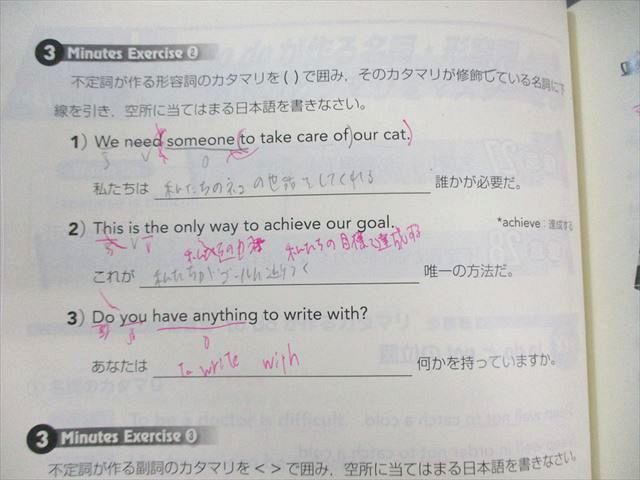 3 Minutes Exercise ②
不定詞が作る形容詞のカタマリを( )で囲み、そのカタマリが修飾している名詞に下
線を引き、空所に当てはまる日本語を書きなさい。
1) We need someone (to take care of) our cat.)
S V O
私たちは 私たちのネコの世話をしてくれる 誰かが必要だ。
2) This is the only way to achieve our goal. *achieve：達成する
S V
私たちの目標を達成する
これが 唯一の方法だ。
3) Do you have anything to write with?
S O
あなたは to write with 何かを持っていますか。
3 Minutes Exercise ③
不定詞が作る副詞のカタマリを< >で囲み、空所に当てはまる日本語を書きなさい。